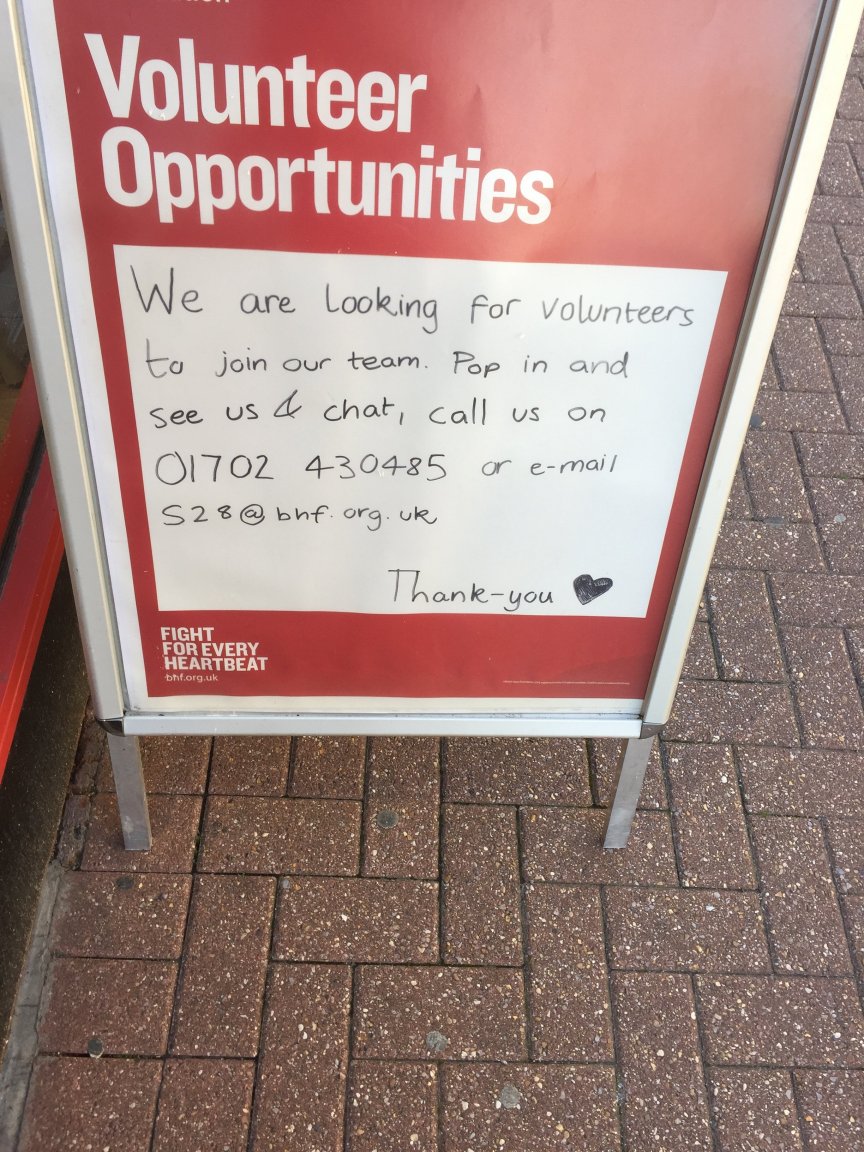 Volunteer
Opportunities
We are looking for volunteers
to join our team. Pop in and
see us & chat, call us on
01702 430485 or e-mail
S28@bhf.org.uk
Thank-you
FIGHT
FOR EVERY
HEARTBEAT
bhf.org.uk